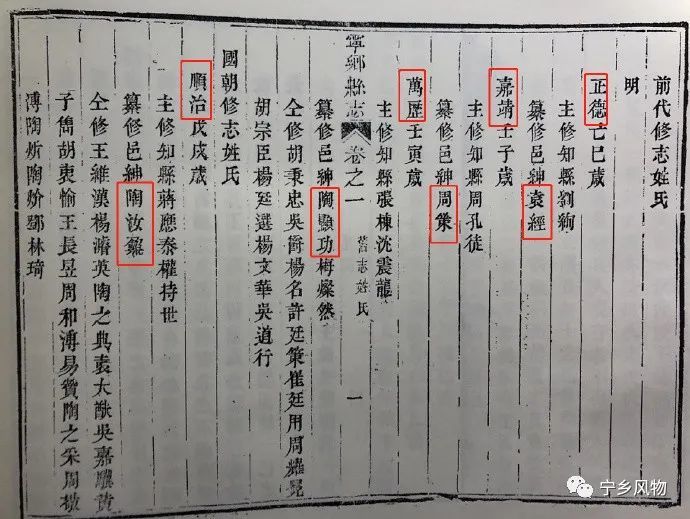 前代修志姓氏
明
正德己巳歲
主修知縣劉絢
纂修邑紳袁經
嘉靖壬子歲
主修知縣周孔徒
纂修邑紳周策
萬歷壬寅歲
主修知縣張棟沈震龍
寧鄉縣志
卷之一
舊志姓氏
一
纂修邑紳陶顯功梅燦然
仝修胡秉忠吳衠楊名許廷策崔廷用周
胡宗臣楊廷選楊文華吳道行
國朝修志姓氏
順治戊戌歲
主修知縣蔣應泰權持世
纂修邑紳陶汝鼐
仝修王維漢楊濬英陶之典袁大猷吳嘉驥黃
子雋胡東愉王長昱周和溥易贊陶之采周
溥陶炘陶妢鄧林琦
宁乡风物